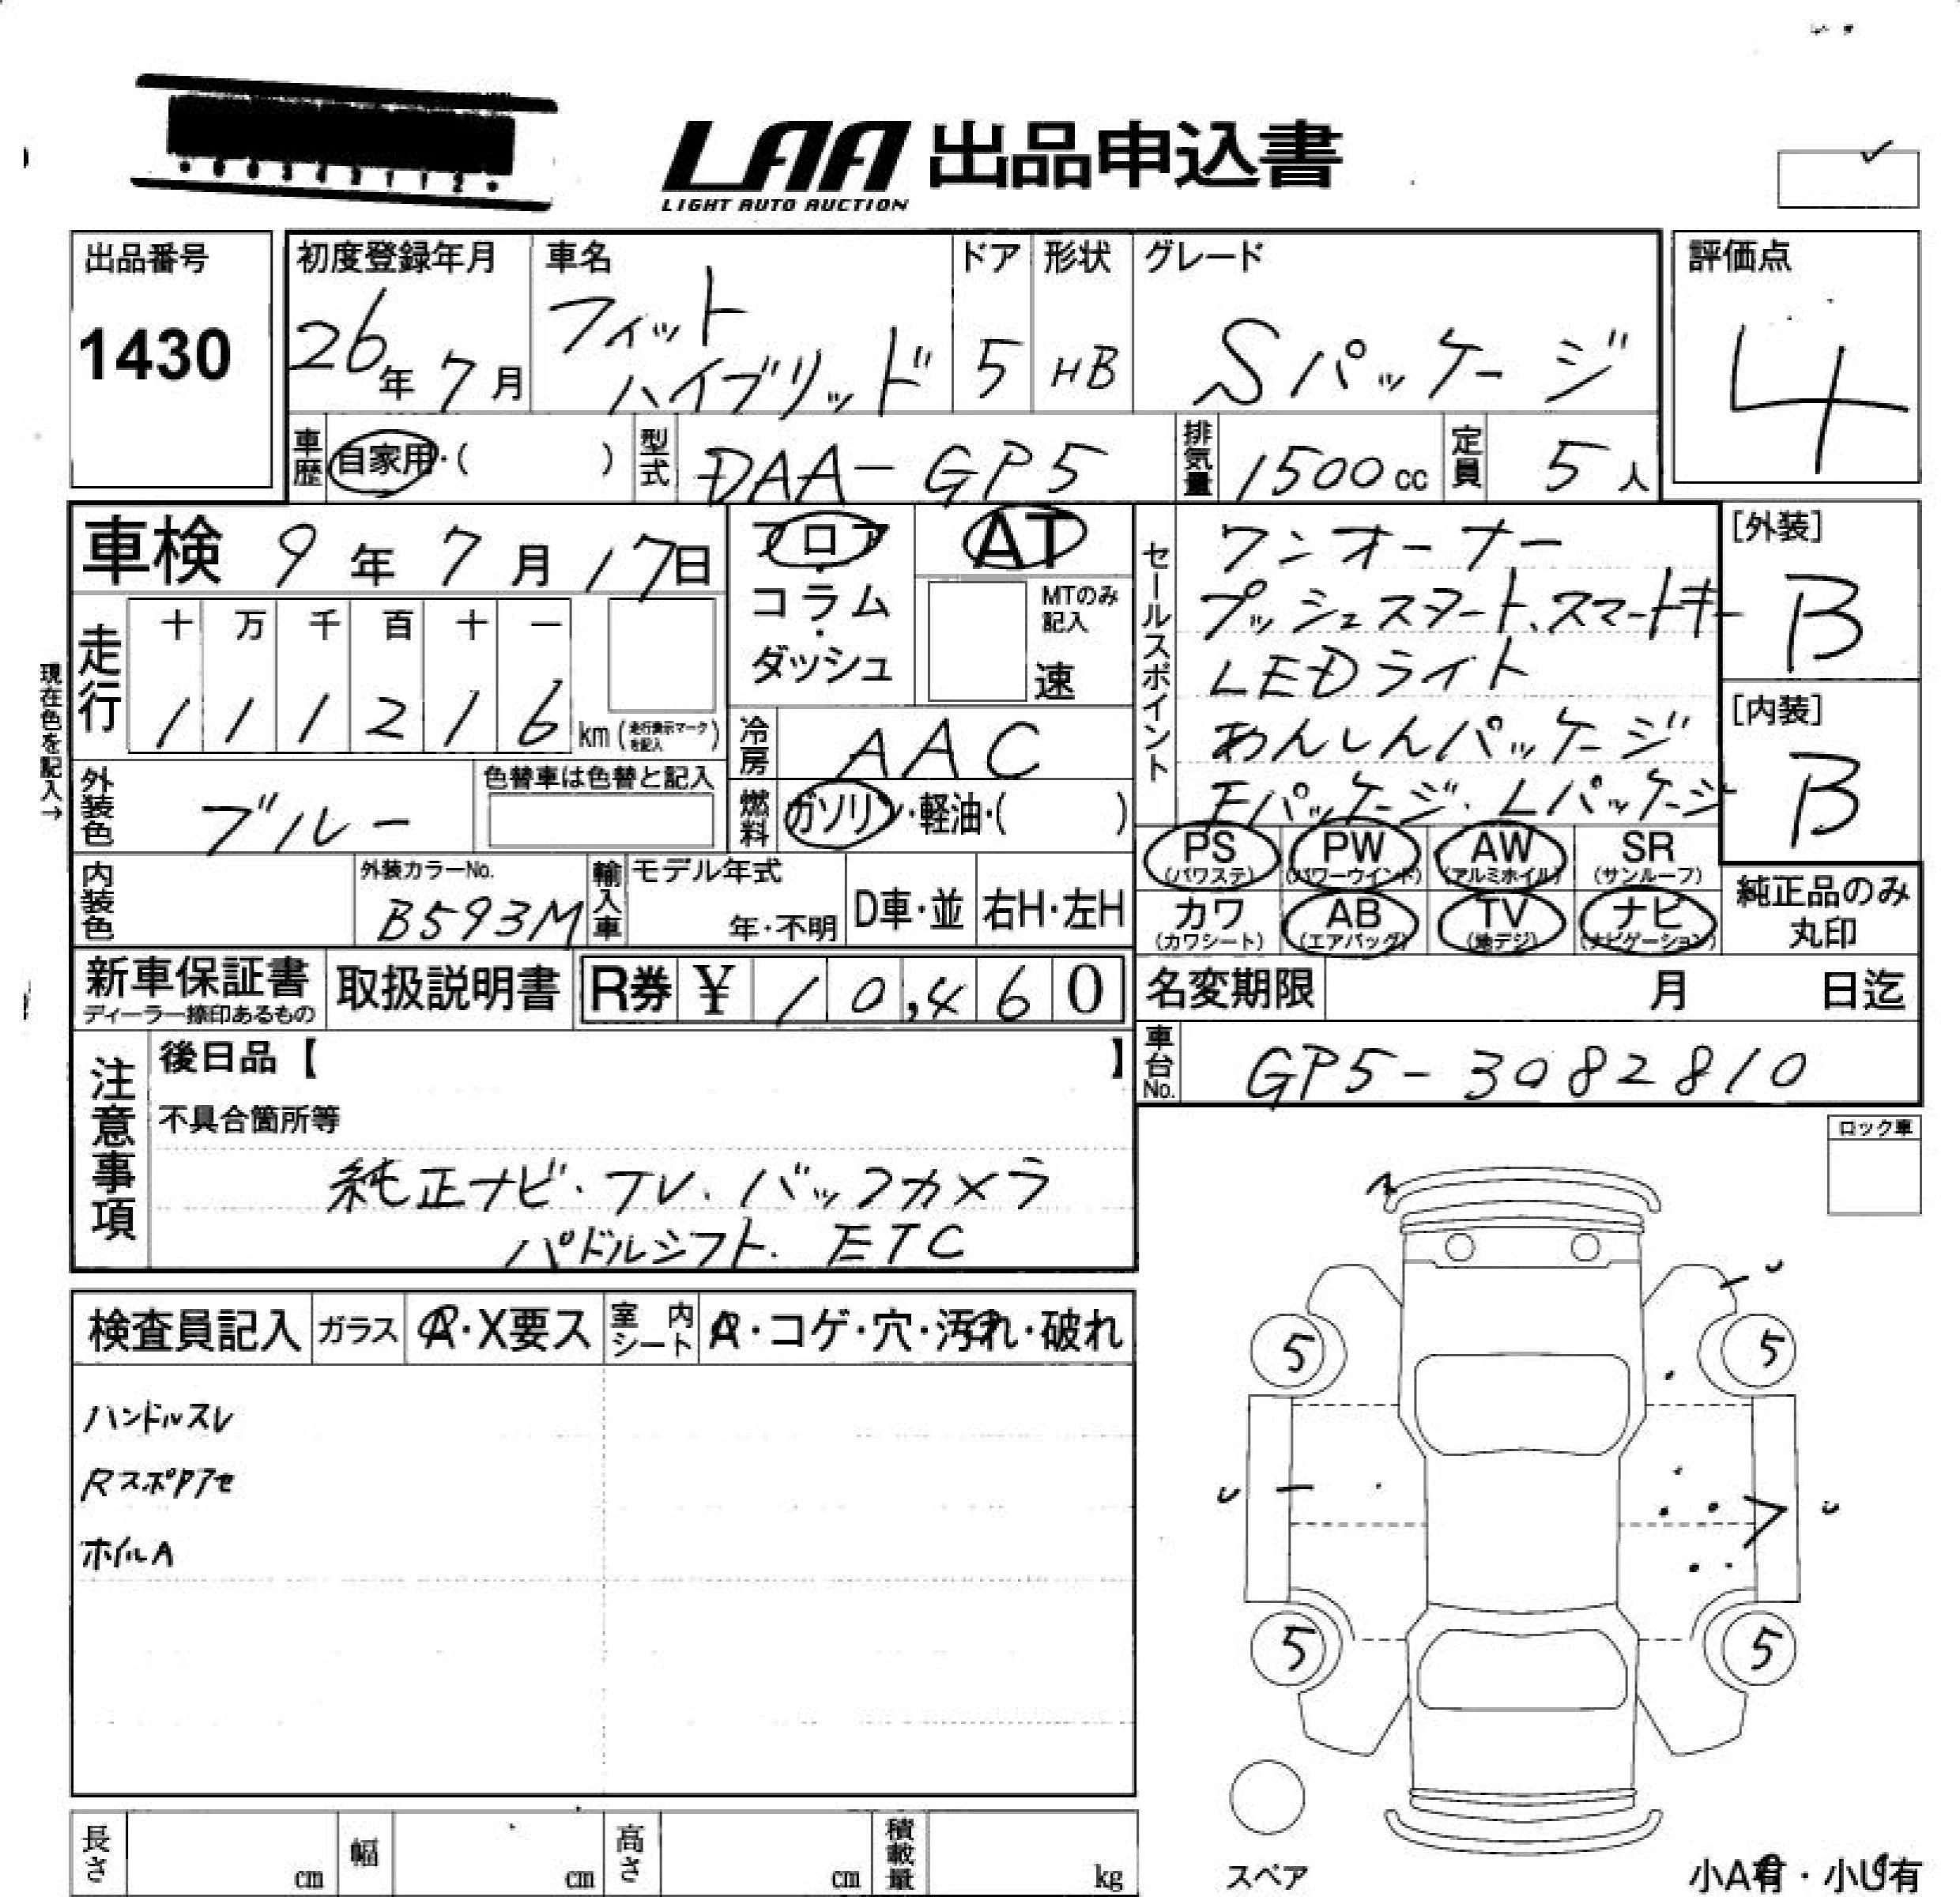 LAA 出品申込書
LIGHT AUTO AUCTION
出品番号
1430
初度登録年月
26年7月
車名
フィット
ハイブリッド
ドア
5
形状
HB
グレード
Sパッケージ
評価点
4
車歴
自家用・( )
型式
DAA-GP5
排気量
1500cc
定員
5人
車検 9年7月17日
フロア
・
コラム
・
ダッシュ
AT
MTのみ
記入
速
セールスポイント
ワンオーナー
プッシュスタート、スマートキー
LEDライト
あんしんパッケージ
Fパッケージ・Lパッケージ
[外装]
B
[内装]
B
現在色を記入→
走行
十 万 千 百 十 一
1 1 1 2 1 6 km (走行表示マークを記入)
冷房
AAC
外装色
ブルー
色替車は色替と記入
燃料
ガソリン・軽油・( )
PS
(パワステ)
PW
(パワーウインド)
AW
(アルミホイル)
SR
(サンルーフ)
カワ
(カワシート)
AB
(エアバッグ)
TV
(地デジ)
ナビ
(ナビゲーション)
純正品のみ
丸印
内装色
外装カラーNo.
B593M
輸入車
モデル年式
年・不明
D車・並
右H・左H
新車保証書
ディーラー捺印あるもの
取扱説明書
R券 ¥ 10,460
名変期限 月 日迄
車台No.
GP5-3082810
注意事項
後日品【 】
不具合箇所等
純正ナビ・TV、バックカメラ
パドルシフト、ETC
ロック車
検査員記入
ガラス
A・X要ス
室内シート
A・コゲ・穴・汚れ・破れ
ハンドルスレ
ホイルA
5
5
5
5
スペア
長さ cm
幅 cm
高さ cm
積載量 kg
小A有・小U有